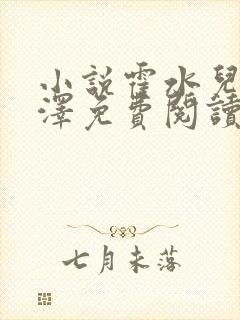 小説霍水兒
澤免費閱讀
七月未落